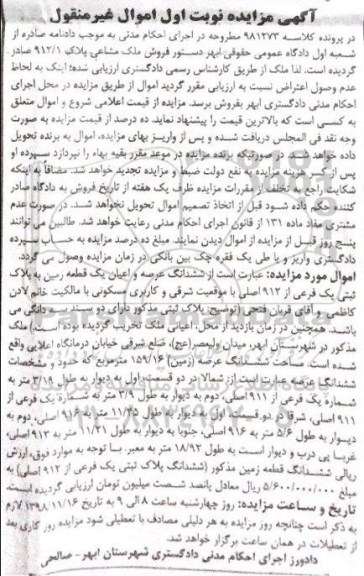 آگهی مزایده نوبت اول اموال غیرمنقول
در پرونده کلاسه ۹۸۱۲۷۳ مطروحه در اجرای احکام مدنی به موجب دادنامه صادره از
شعبه اول دادگاه عمومی حقوقی ابهر دستور فروش ملک مشاعی پلاک ۹۱۲/۱ صادر
گردیده است. لذا ملک از طریق کارشناس رسمی دادگستری ارزیابی شده؛ اینک به لحاظ
عدم وصول اعتراض نسبت به ارزیابی مقرر گردید اموال از طریق مزایده در محل اجرای
احکام مدنی دادگستری ابهر بفروش برسد. مزایده از قیمت اعلامی شروع و اموال متعلق
به کسی است که بالاترین قیمت را پیشنهاد نماید. ده درصد از قیمت مزایده به صورت
وجه نقد فی المجلس دریافت شده و پس از واریز بهای مزایده، اموال به برنده تحویل
داده خواهد شد. در صورتیکه برنده مزایده در موعد مقرر بقیه بهاء را نپردازد سپرده او
پس از کسر هزینه مزایده به نفع دولت ضبط و مزایده تجدید خواهد شد. مضافاً به اینکه
شکایت راجع به تخلف از مقررات مزایده ظرف یک هفته از تاریخ فروش به دادگاه صادر
کننده حکم داده شود قبل از اتخاذ تصمیم اموال تحویل نخواهد شد. در صورت عدم
مشتری مفاد ماده ۱۳۱ از قانون اجرای احکام مدنی رعایت خواهد شد. طالبین می توانند
پنج روز قبل از مزایده از اموال دیدن نمایند. مبلغ ده درصد مزایده به حساب سپرده
دادگستری واریز و یا طی یک فقره چک بین بانکی در زمان مزایده وصول می گردد.
اموال مورد مزایده: عبارت است از ششدانگ عرصه و اعیان یک قطعه زمین به پلاک
ثبتی یک فرعی از ۹۱۲ اصلی با موقعیت شرقی و کاربری مسکونی با مالکیت خانم لادن
کاظمی و آقای قربان فتحی (توضیح: پلاک ثبتی مذکور دارای دو سند سه دانگی می
باشد. همچنین در زمان بازدید از محل، اعیانی ملک تخریب گردیده بوده است.) ملک
مذکور در شهرستان ابهر، میدان ولیعصر(عج)، ضلع شرقی خیابان درمانگاه اعلایی واقع
شده است. مساحت ششدانگ عرصه (زمین) ۱۵۹/۱۶ مترمربع که حدود و مشخصات
ششدانگ عرصه عبارت است از: شمالا در دو قسمت، اول به دیوار به طول متر به
شماره یک فرعی از ۹۱۱ اصلی، دوم به دیوار به طول ۳/۹ متر به شماره یک فرعی از
۹۱۱ اصلی، شرقا در دو قسمت، اول به دیوار به طول ۱۱/۴۵ متر به ۹۱۶ اصلی، دوم به
دیوار به طول ۵/۶ متر به ۹۱۶ اصلی، جنوبا به دیوار به طول ۱۱/۲۱ متر به ۹۱۳ اصلی،
غربا پی درب و دیوار است به طول ۱۸/۹۲ متر به معبر. با توجه به موارد فوق، ارزش
ریالی ششدانگ قطعه زمین مذکور (ششدانگ پلاک ثبتی یک فرعی از ۹۱۲ اصلی) به
مبلغ ۵/۶۰۰/۰۰۰/۰۰۰ ریال معادل پانصد شصت میلیون تومان ارزیابی گردیده است.
تاریخ و ساعت مزایده: روز چهارشنبه ساعت ۸ الی ۹ به تاریخ ۱۳۹۸/۱۱/۱۶ لازم
به ذکر است چنانچه روز مزایده به هر دلیلی مصادف با تعطیلی شود مزایده روز کاری بعد
از تعطیلات در همان ساعت برگزار خواهد شد.
دادورز اجرای احکام مدنی دادگستری شهرستان ابهر- صالحی